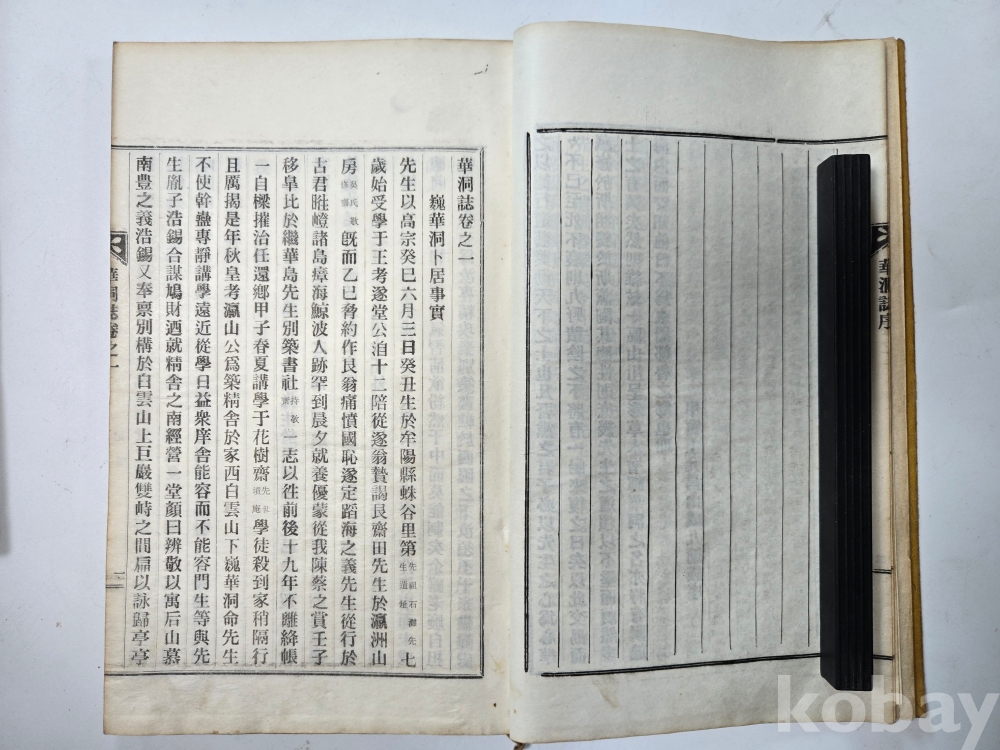 華洞誌序
華洞誌卷之一
巍華洞卜居事實
先生以高宗癸巳六月三日癸丑生於牟陽縣蛛谷里第先祖石灘先生道鍾七
歲始受學于王考遂堂公洎十二陪從遂翁贄謁艮齋田先生於瀛洲山
房吳氏敬修齋旣而乙巳脅約作艮翁痛憤國恥遂定蹈海之義先生從行於
古君暀嶝諸島瘴海鯨波人跡罕到晨夕就養優蒙從我陳蔡之賞壬子
移皐比於繼華島先生別築書社持敬一志以徃前後十九年不離絳帳
一自樑摧治任還鄕甲子春夏講學于花樹齋學徒殺到家稍隔行
且厲揭是年秋皇考瀛山公爲築精舍於家西白雲山下巍華洞命先生
不使幹蠱專靜講學遠近從學日益衆庠舍能容而不能容門生等與先
生胤子浩錫合謀鳩財酒就精舍之南經營一堂顏曰辨敬以寓后山慕
南豊之義浩錫又奉稟別構於白雲山上巨巖雙峙之間扁以詠歸亭亭
華洞誌卷之一
一
kobay